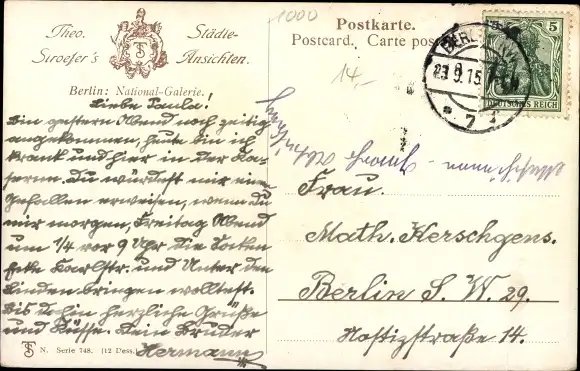 Theo. Stroefer's
Städte-Ansichten.
Berlin: National-Galerie.
Liebe Paula!
Bin gestern Abend noch zeitig
angekommen, heute bin ich
krank und hier in der Ka-
serne. Du würdest mir einen
Gefallen erweisen, wenn Du
mir morgen, Freitag Abend
um 1/4 vor 9 Uhr die Socken
Ecke Karlstr. und Unter den
Linden bringen wolltest.
Bis dahin herzliche Grüße
und Küsse. Dein Bruder
Hermann
TS N. Serie 748. [12 Dess.]
1000
Postkarte.
Postcard. Carte
14.-
5
DEUTSCHES REICH
BERLIN
15
7
Frau.
Math. Kerschgens.
Berlin S. W. 29.
Nostizstraße 14.